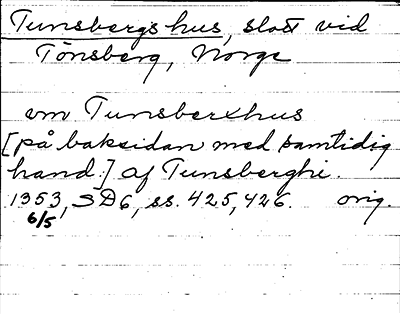 Tunsbergs hus, slott vid
Tönsberg, Norge
vm Tunsberxhus
[på baksidan med samtidig
hand:] af Tunsberghi.
1353, SD6, ss. 425, 426. orig.
6/5